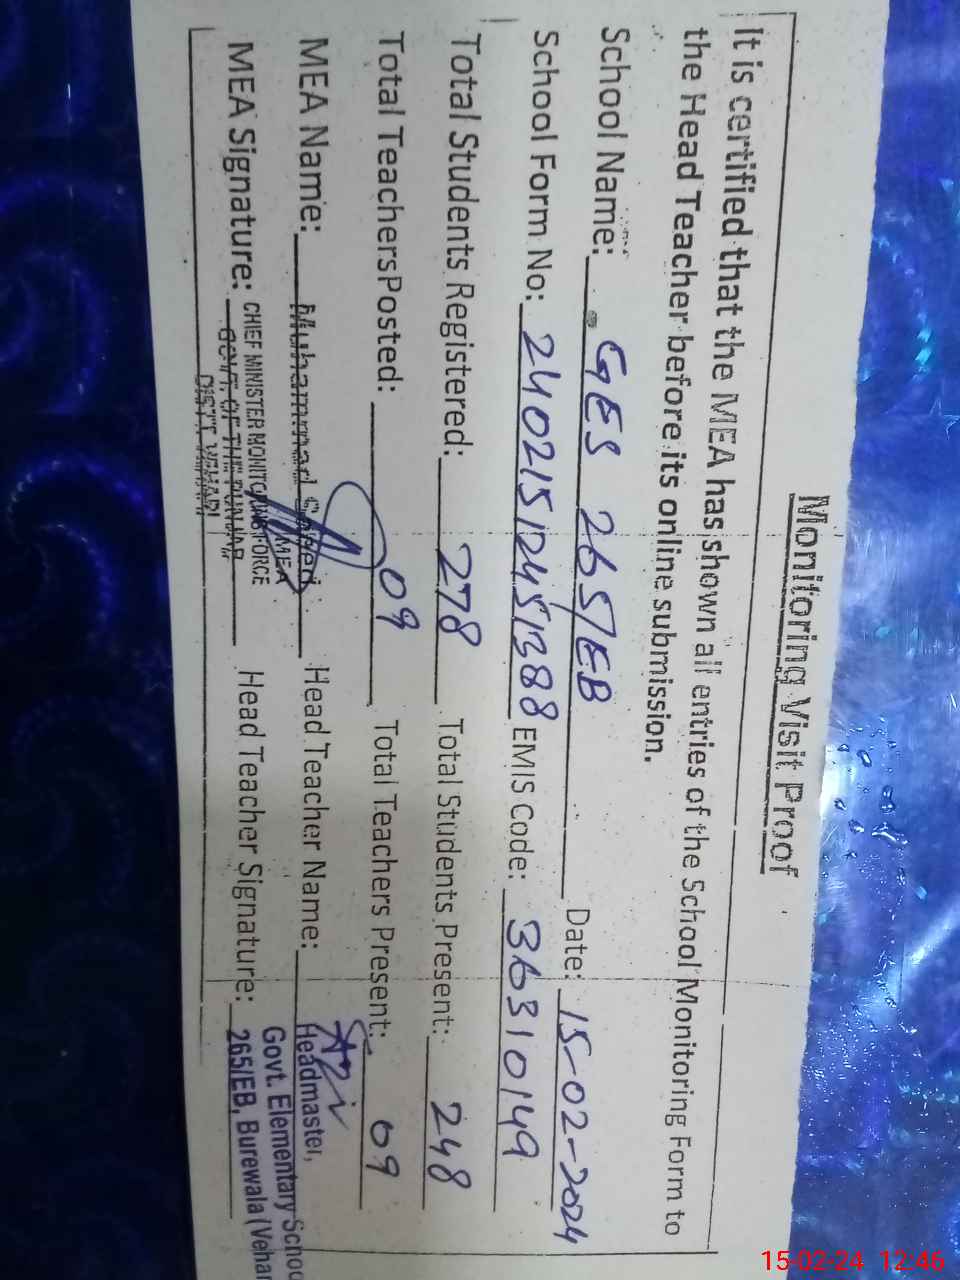 Monitoring Visit Proof
It is certified that the MEA has shown all entries of the School Monitoring Form to
the Head Teacher before its online submission.
School Name: GES 265/EB Date: 15-02-2024
School Form No: 24021512451388 EMIS Code: 36310149
Total Students Registered: 278 Total Students Present: 248
Total TeachersPosted: 09 Total Teachers Present: 09
MEA Name: Muhammad Saeed Head Teacher Name:
MEA
MEA Signature: CHIEF MINISTER MONITORING FORCE Head Teacher Signature:
GOVT. OF THE PUNJAB
DISTT VEHARI
Headmaster,
Govt. Elementary Schoo
265/EB, Burewala (Vehar
15-02-24 12:46